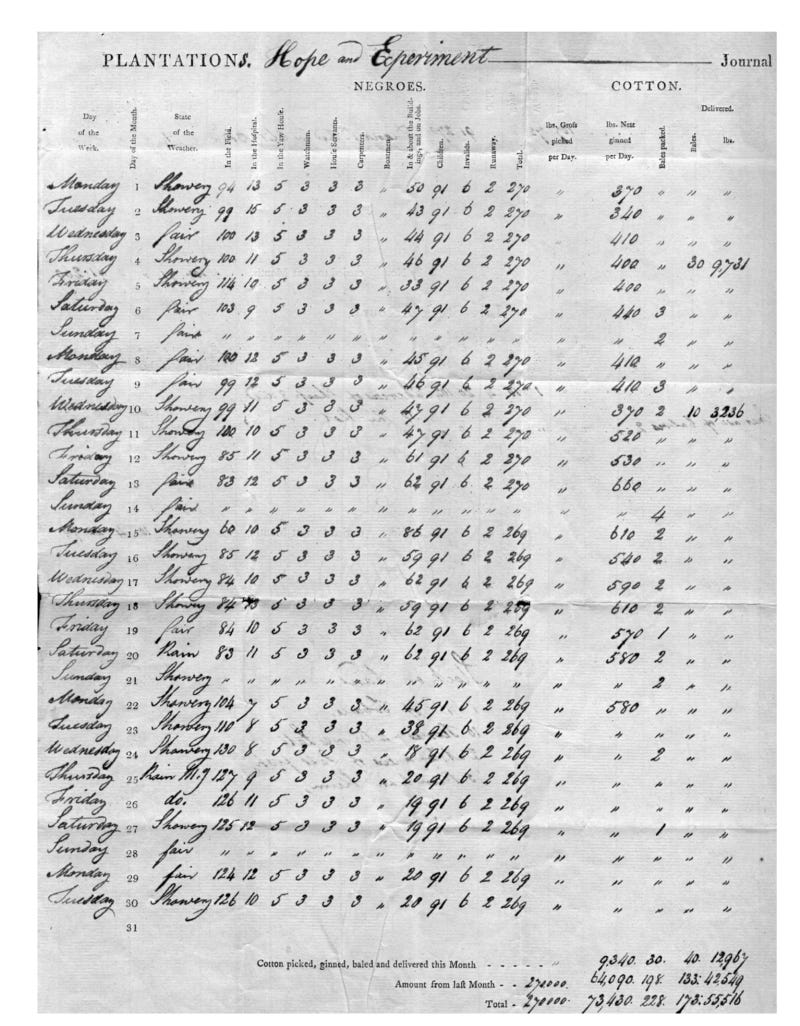 PLANTATIONS. Hope and Experiment Journal
NEGROES. COTTON.
Day of the Week. Day of the Month. State of the Weather. In the Field. In the Hospital. In the Yaw House. Watchmen. House Servants. Carpenters. Boatmen. In & about the Buildings, and on Jobs. Children. Invalids. Runaway. Total. lbs. Groſs picked per Day. lbs. Nett ginned per Day. Bales packed. Delivered. Bales. lbs.
Monday 1 Showery 94 13 5 3 3 3 " 50 91 6 2 270 " 370 " " "
Tuesday 2 Showery 99 15 5 3 3 3 " 43 91 6 2 270 " 340 " " "
Wednesday 3 fair 100 13 5 3 3 3 " 44 91 6 2 270 " 410 " " "
Thursday 4 Showery 100 11 5 3 3 3 " 46 91 6 2 270 " 400 " 30 9,731
Friday 5 Showery 114 10 5 3 3 3 " 33 91 6 2 270 " 400 " " "
Saturday 6 fair 103 9 5 3 3 3 " 47 91 6 2 270 " 440 3 " "
Sunday 7 fair " " " " " " " " " " " " " " 2 " "
Monday 8 fair 100 12 5 3 3 3 " 45 91 6 2 270 " 410 " " "
Tuesday 9 fair 99 12 5 3 3 3 " 46 91 6 2 270 " 410 3 " "
Wednesday 10 Showery 99 11 5 3 3 3 " 47 91 6 2 270 " 370 2 10 3236
Thursday 11 Showery 100 10 5 3 3 3 " 47 91 6 2 270 " 520 " " "
Friday 12 Showery 85 11 5 3 3 3 " 61 91 6 2 270 " 530 " " "
Saturday 13 fair 83 12 5 3 3 3 " 62 91 6 2 270 " 660 " " "
Sunday 14 fair " " " " " " " " " " " " " " 4 " "
Monday 15 Showery 60 10 5 3 3 3 " 86 91 6 2 269 " 610 2 " "
Tuesday 16 Showery 85 12 5 3 3 3 " 59 91 6 2 269 " 540 2 " "
Wednesday 17 Showery 84 10 5 3 3 3 " 62 91 6 2 269 " 590 2 " "
Thursday 18 Showery 84 13 5 3 3 3 " 59 91 6 2 269 " 610 2 " "
Friday 19 fair 84 10 5 3 3 3 " 62 91 6 2 269 " 570 1 " "
Saturday 20 Rain 83 11 5 3 3 3 " 62 91 6 2 269 " 580 2 " "
Sunday 21 Showery " " " " " " " " " " " " " " 2 " "
Monday 22 Showery 104 7 5 3 3 3 " 45 91 6 2 269 " 580 " " "
Tuesday 23 Showery 110 8 5 3 3 3 " 38 91 6 2 269 " " " " "
Wednesday 24 Showery 130 8 5 3 3 3 " 18 91 6 2 269 " " 2 " "
Thursday 25 Rain 127 9 5 3 3 3 " 20 91 6 2 269 " " " " "
Friday 26 do. 126 11 5 3 3 3 " 19 91 6 2 269 " " " " "
Saturday 27 Showery 125 12 5 3 3 3 " 19 91 6 2 269 " " 1 " "
Sunday 28 fair " " " " " " " " " " " " " " " " "
Monday 29 fair 124 12 5 3 3 3 " 20 91 6 2 269 " " " " "
Tuesday 30 Showery 126 10 5 3 3 3 " 20 91 6 2 269 " " " " "
31
Cotton picked, ginned, baled and delivered this Month - - - - - " 9,340. 30. 40. 12967
Amount from laſt Month - - 270000. 64,090. 198. 133. 42549
Total - - 270000. 73,430. 228. 173. 55,516